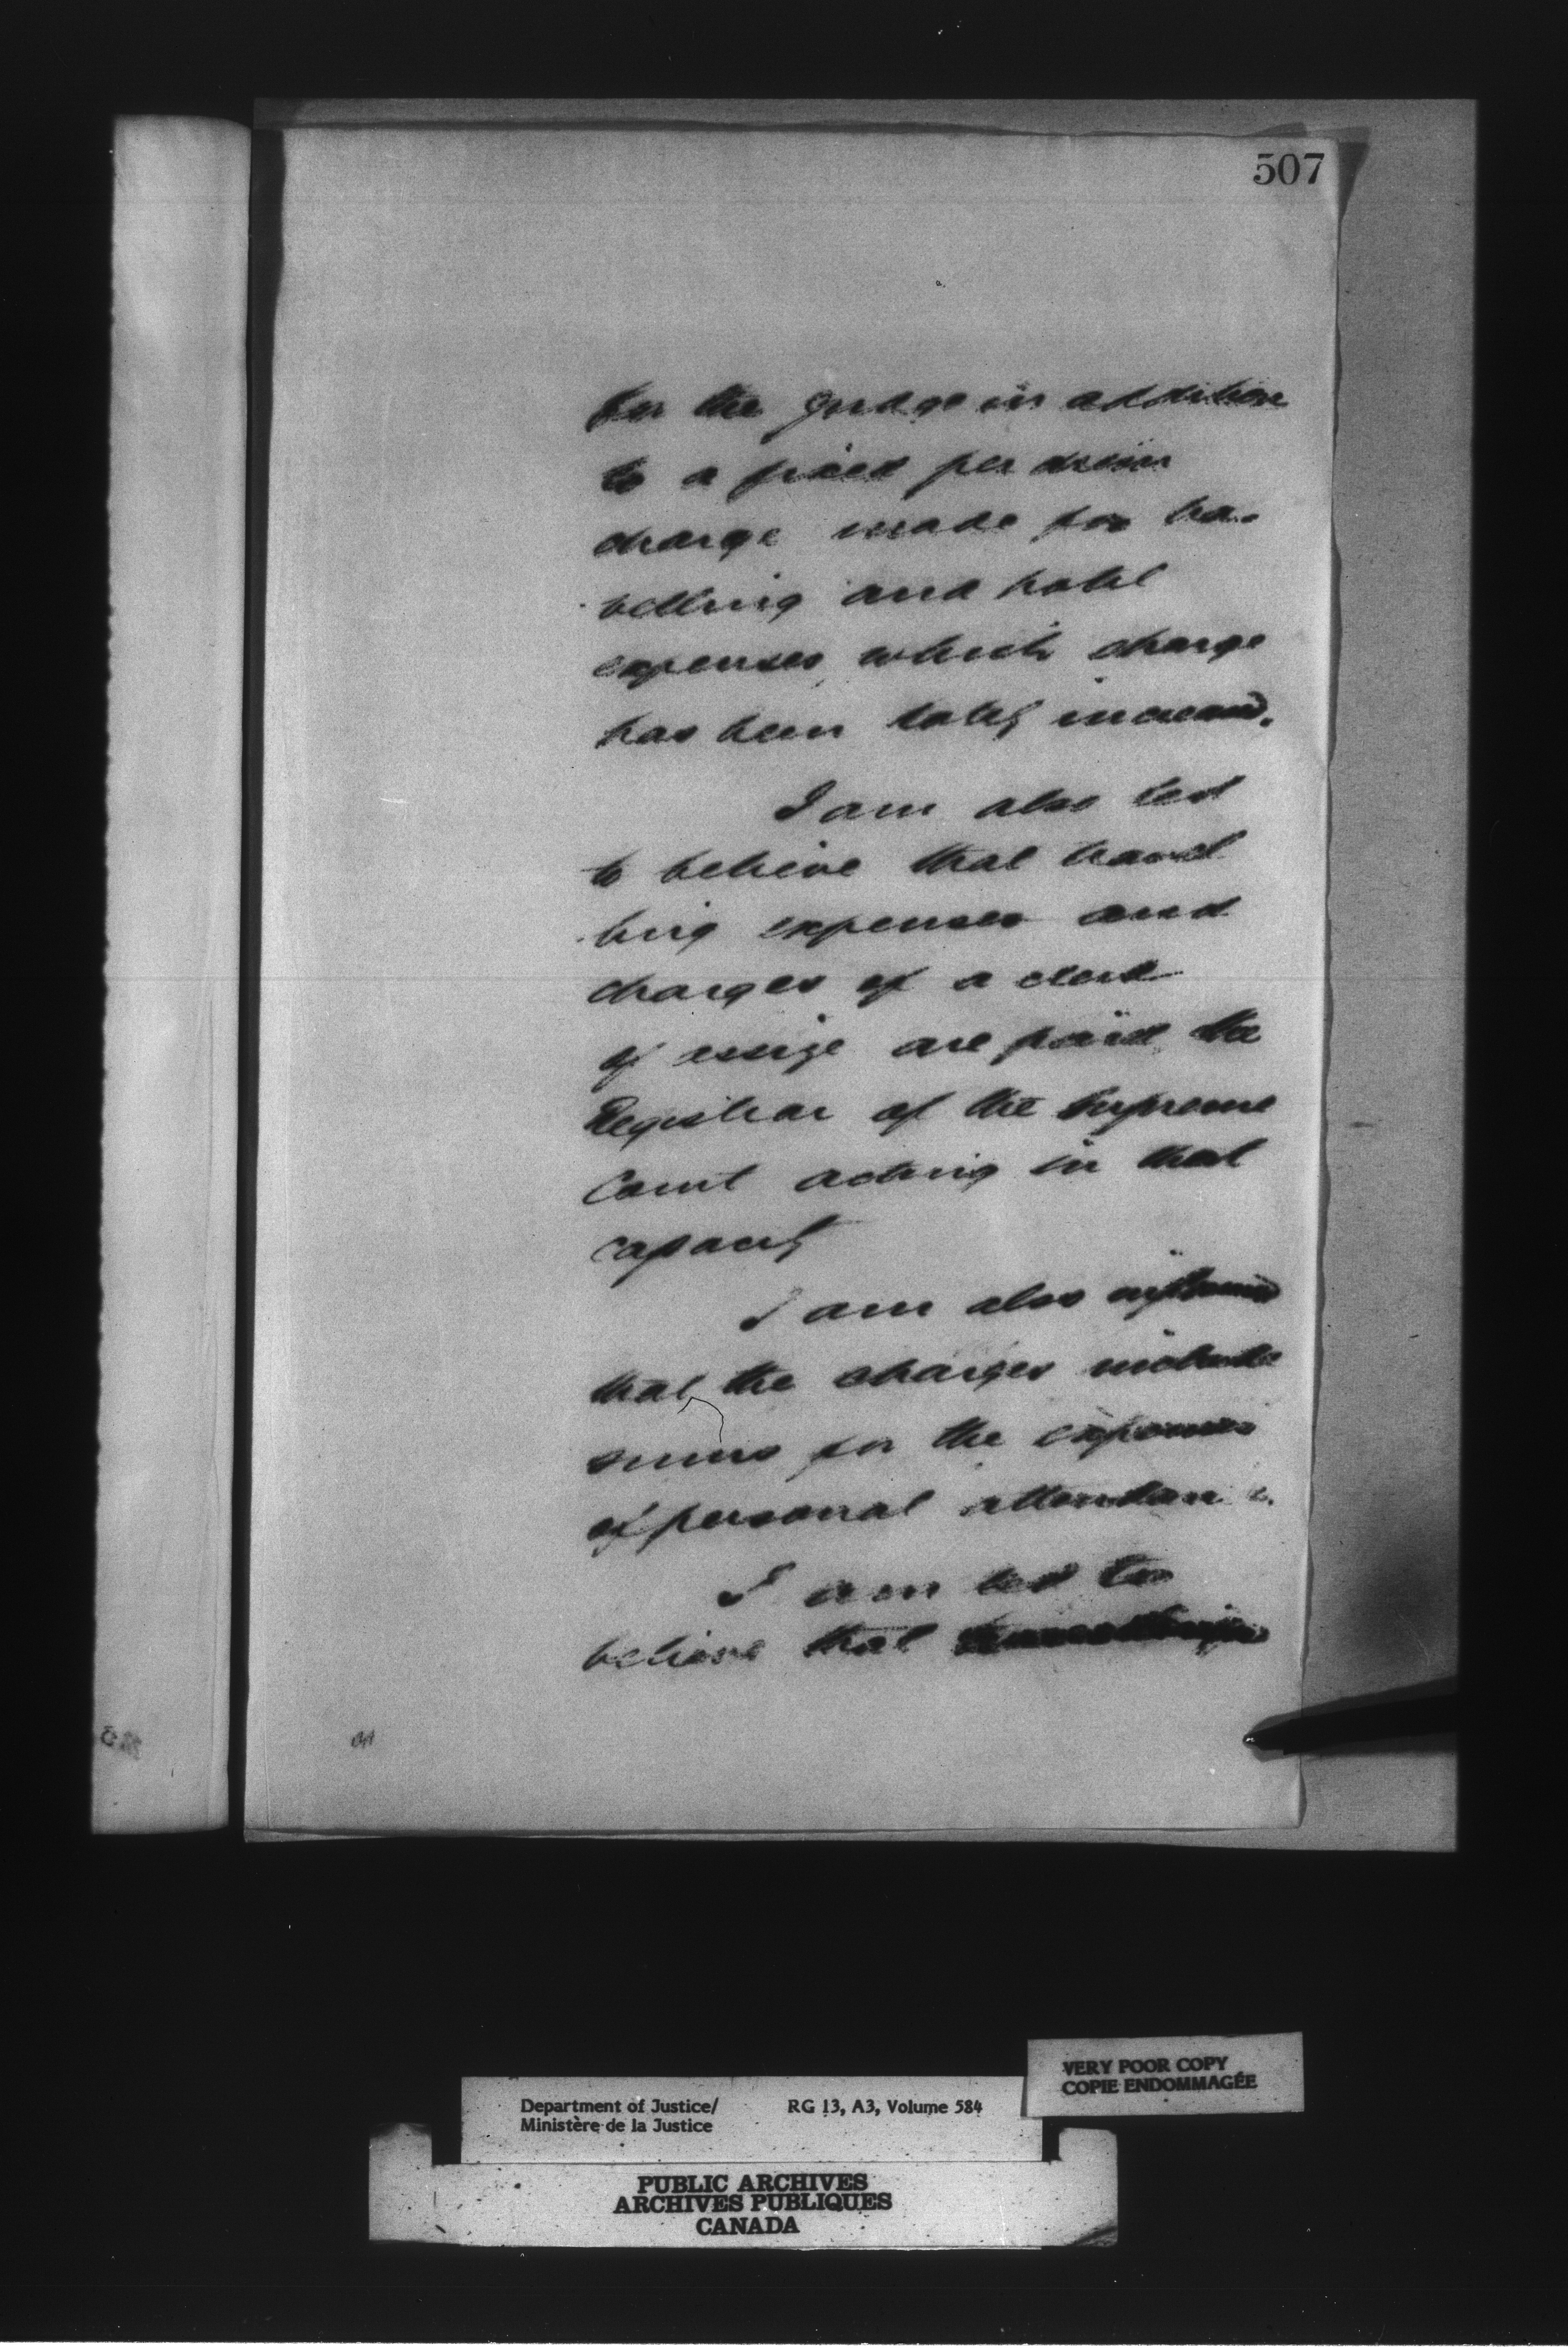 507
for the Judge in addition
to a fixed per diem
charge made for tra-
velling and hotel
expenses which charge
has been lately increased.
I am also led
to believe that travel
ling expenses and
charges of a clerk
of assize are paid the
Registrar of the Supreme
Court acting in that
capacity
I am also informed
that the charges include
sums for the expenses
of personal attendance.
I am led to
believe that
VERY POOR COPY
COPIE ENDOMMAGÉE
Department of Justice/ RG 13, A3, Volume 584
Ministère de la Justice
PUBLIC ARCHIVES
ARCHIVES PUBLIQUES
CANADA